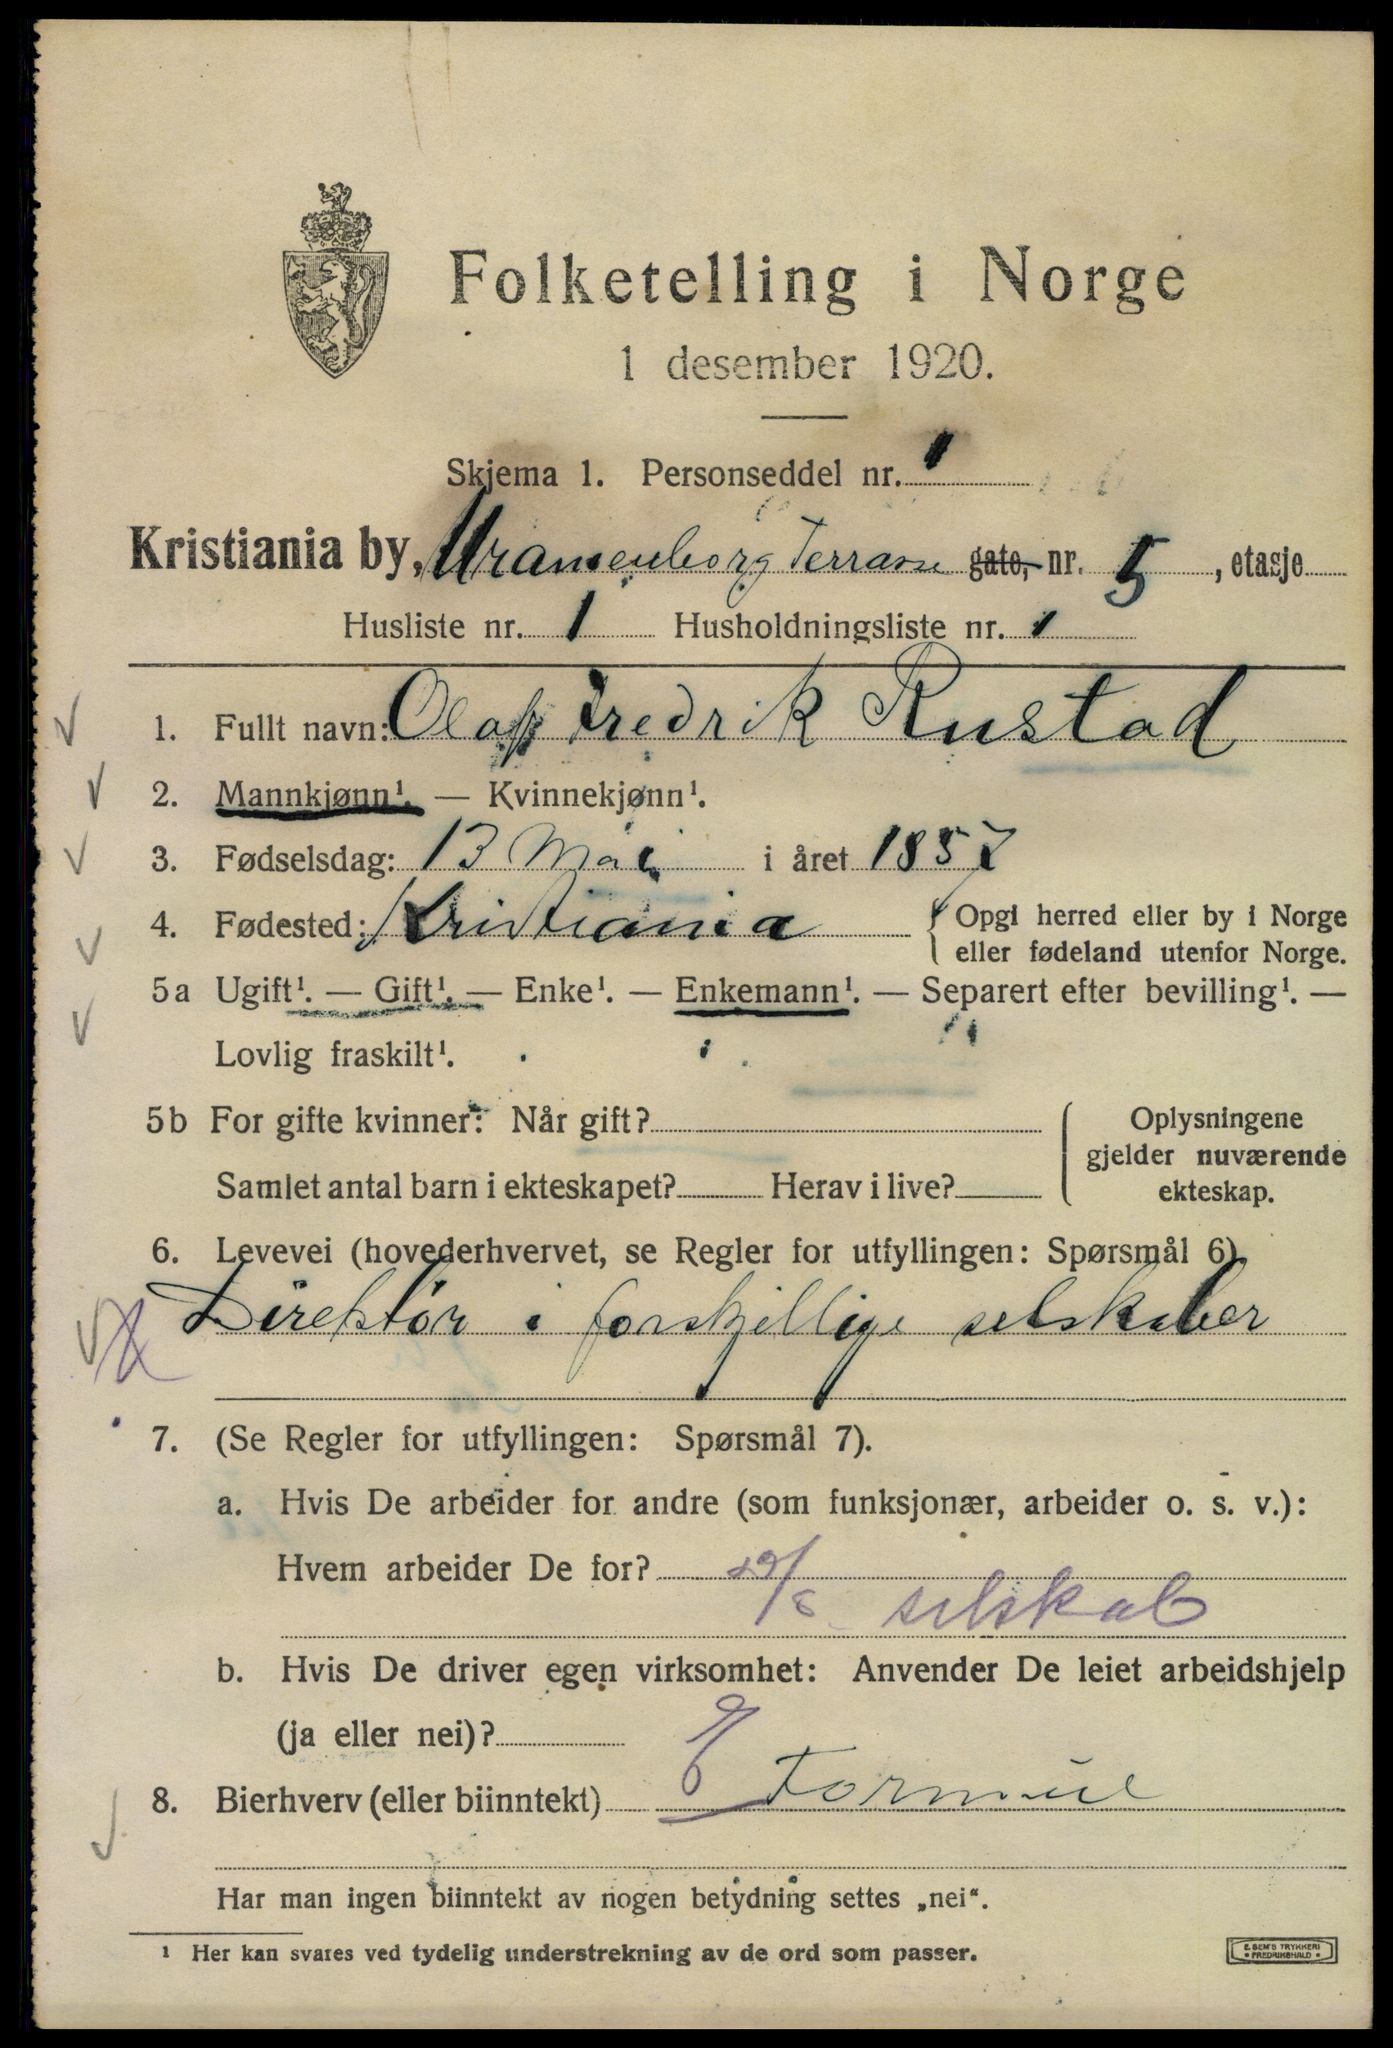 Folketelling i Norge
1 desember 1920.
Skjema 1. Personseddel nr. 1
Kristiania by, Uranienborg Terrasse gate, nr. 5, etasje
Husliste nr. 1 Husholdningsliste nr. 1
1. Fullt navn: Olaf Fredrik Rustad
2. Mannkjønn¹. — Kvinnekjønn¹.
3. Fødselsdag: 13 Mai i året 1857
4. Fødested: Kristiania { Opgi herred eller by i Norge
eller fødeland utenfor Norge.
5a Ugift¹. — Gift¹. — Enke¹. — Enkemann¹. — Separert efter bevilling¹. —
Lovlig fraskilt¹.
5b For gifte kvinner: Når gift?
Samlet antal barn i ekteskapet? Herav i live?
{ Oplysningene
gjelder nuværende
ekteskap.
6. Levevei (hovederhvervet, se Regler for utfyllingen: Spørsmål 6)
Direktør i forskjellige selskaber
7. (Se Regler for utfyllingen: Spørsmål 7).
a. Hvis De arbeider for andre (som funksjonær, arbeider o. s. v.):
Hvem arbeider De for?
selskab
b. Hvis De driver egen virksomhet: Anvender De leiet arbeidshjelp
(ja eller nei)?
8. Bierhverv (eller biinntekt) Formue
Har man ingen biinntekt av nogen betydning settes „nei“.
¹ Her kan svares ved tydelig understrekning av de ord som passer.
E SEM'S TRYKKERI
FREDRIKSHALD